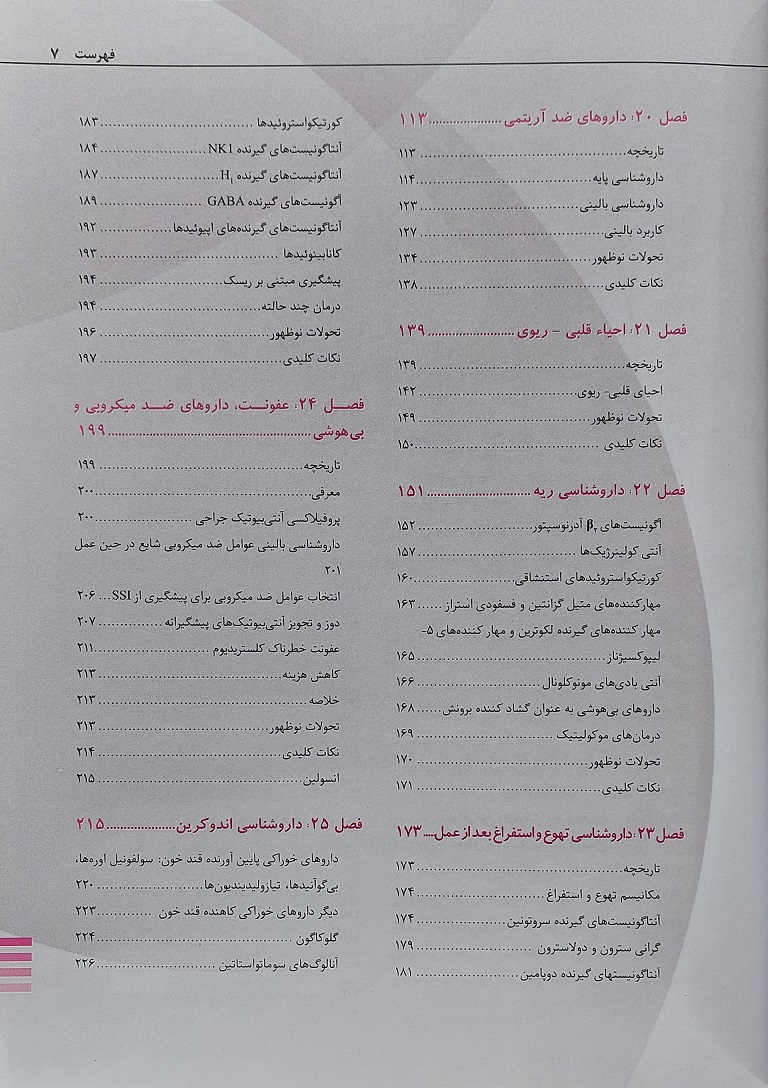 فهرست ۷
فصل ۲۰: داروهای ضد آریتمی......................۱۱۳
تاریخچه..............................................۱۱۳
داروشناسی پایه.......................................۱۱۴
داروشناسی بالینی.....................................۱۲۳
کاربرد بالینی..........................................۱۲۷
تحولات نوظهور.......................................۱۳۴
نکات کلیدی..........................................۱۳۸
فصل ۲۱: احیاء قلبی - ریوی..........................۱۳۹
تاریخچه..............................................۱۳۹
احیای قلبی- ریوی.....................................۱۴۲
تحولات نوظهور.......................................۱۴۹
نکات کلیدی..........................................۱۵۰
فصل ۲۲: داروشناسی ریه..............................۱۵۱
آگونیست‌های β۲ آدرنوسپتور..........................۱۵۲
آنتی کولینرژیک‌ها....................................۱۵۷
کورتیکواستروئیدهای استنشاقی........................۱۶۰
مهارکننده‌های متیل گزانتین و فسفودی استراز......۱۶۳
مهار کننده‌های گیرنده لکوترین و مهار کننده‌های ۵-
لیپوکسیژناز...........................................۱۶۵
آنتی بادی‌های مونوکلونال.............................۱۶۶
داروهای بی‌هوشی به عنوان گشاد کننده برونش......۱۶۸
درمان‌های موکولیتیک.................................۱۶۹
تحولات نوظهور.......................................۱۷۰
نکات کلیدی..........................................۱۷۱
فصل ۲۳: داروشناسی تهوع و استفراغ بعد از عمل....۱۷۳
تاریخچه..............................................۱۷۳
مکانیسم تهوع و استفراغ..............................۱۷۴
آنتاگونیست‌های گیرنده سروتونین.....................۱۷۴
گرانی سترون و دولاسترون...........................۱۷۹
آنتاگونیستهای گیرنده دوپامین........................۱۸۱
کورتیکواستروئیدها...................................۱۸۳
آنتاگونیست‌های گیرنده NK1.........................۱۸۴
آنتاگونیست‌های گیرنده H۱...........................۱۸۷
آگونیست‌های گیرنده GABA.........................۱۸۹
آنتاگونیست‌های گیرنده‌های اپیوئیدها.................۱۹۲
کانابینوئیدها.........................................۱۹۳
پیشگیری مبتنی بر ریسک............................۱۹۴
درمان چند حالته.....................................۱۹۴
تحولات نوظهور.......................................۱۹۶
نکات کلیدی..........................................۱۹۷
فصـــل ۲۴: عفونـــت، داروهای ضـد میکروبی و
بی‌هوشی................................................۱۹۹
تاریخچه..............................................۱۹۹
معرفی................................................۲۰۰
پروفیلاکسی آنتی‌بیوتیک جراحی......................۲۰۰
داروشناسی بالینی عوامل ضد میکروبی شایع در حین عمل
۲۰۱
انتخاب عوامل ضد میکروبی برای پیشگیری از SSI...۲۰۶
دوز و تجویز آنتی‌بیوتیک‌های پیشگیرانه...............۲۰۷
عفونت خطرناک کلستریدیوم..........................۲۱۱
کاهش هزینه.........................................۲۱۳
خلاصه...............................................۲۱۳
تحولات نوظهور.......................................۲۱۳
نکات کلیدی..........................................۲۱۴
انسولین...............................................۲۱۵
فصل ۲۵: داروشناسی اندوکرین....................۲۱۵
داروهای خوراکی پایین آورنده قند خون: سولفونیل اوره‌ها،
بی‌گوآنیدها، تیازولیدیندیون‌ها.........................۲۲۰
دیگر داروهای خوراکی کاهنده قند خون.............۲۲۳
گلوکاگون............................................۲۲۴
آنالوگ‌های سوماتواستاتین............................۲۲۶